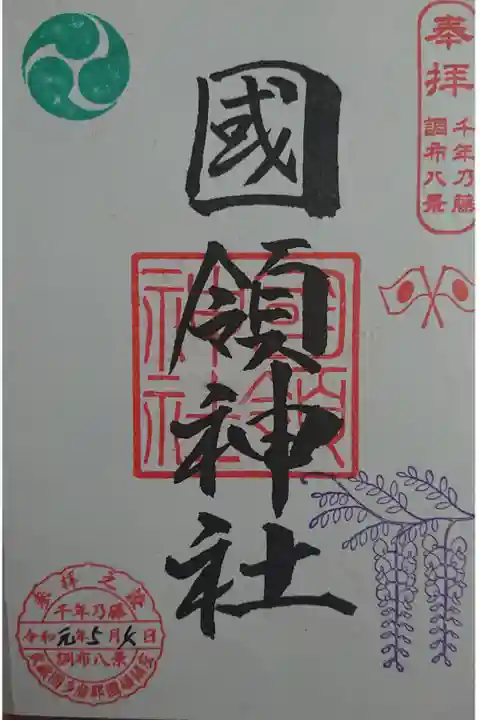 奉拝
千年乃藤
調布八景
國領神社
國領
神社
参拝之證
千年乃藤
令和元年5月 日
調布八景